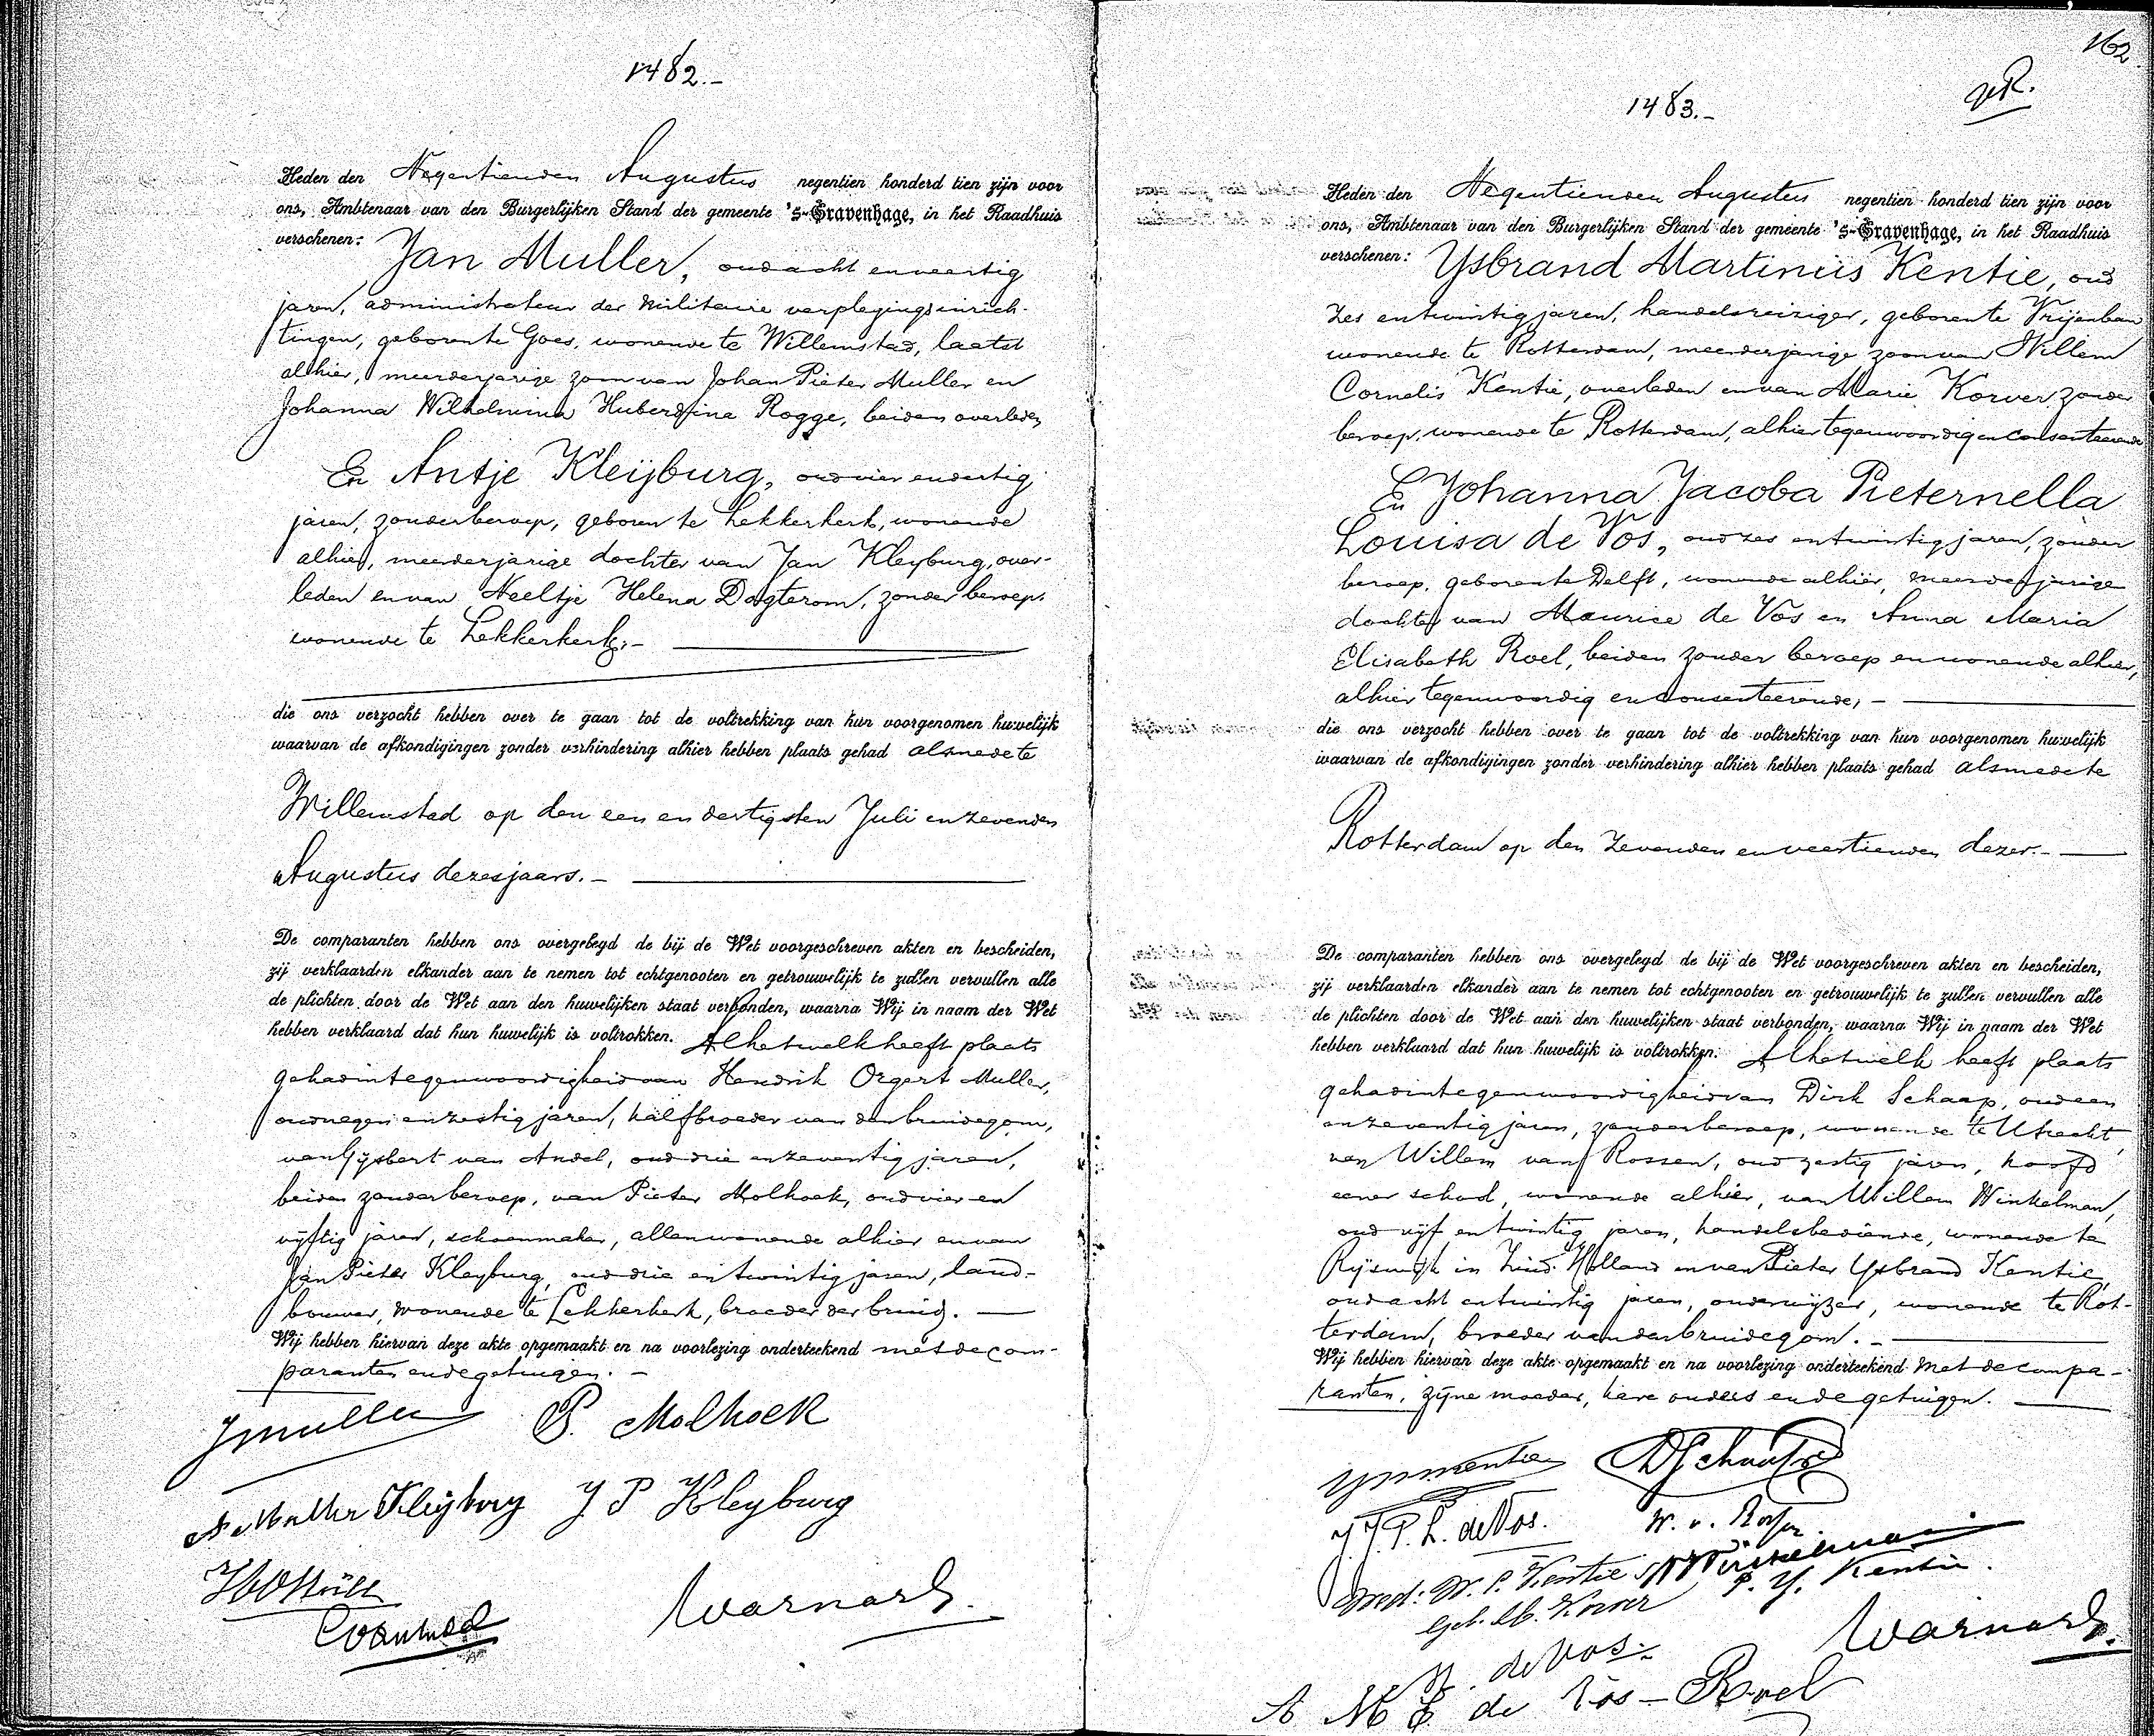 1482.-
Heden den Negentienden Augustus negentien honderd tien zijn voor
ons, Ambtenaar van den Burgerlijken Stand der gemeente 's-Gravenhage, in het Raadhuis
verschenen: Jan Muller, oud acht en veertig
jaren, administrateur der militaire verplegingsinrich-
tingen, geboren te Goes, wonende te Willemstad, laatst
alhier, meerderjarige zoon van Johan Pieter Muller en
Johanna Wilhelmina Huberdina Rogge, beiden overleden
En Antje Kleijburg, oud vier en dertig
jaren, zonder beroep, geboren te Lekkerkerk, wonende
alhier, meerderjarige dochter van Jan Kleyburg, over-
leden en van Neeltje Helena Dogterom, zonder beroep,
wonende te Lekkerkerk;-
die ons verzocht hebben over te gaan tot de voltrekking van hun voorgenomen huwelijk
waarvan de afkondigingen zonder verhindering alhier hebben plaats gehad alsmede te
Willemstad op den een en dertigsten Juli en zevenden
Augustus dezes jaars.-
De comparanten hebben ons overgelegd de bij de Wet voorgeschreven akten en bescheiden,
zij verklaarden elkander aan te nemen tot echtgenooten en getrouwelijk te zullen vervullen alle
de plichten door de Wet aan den huwelijken staat verbonden, waarna Wij in naam der Wet
hebben verklaard dat hun huwelijk is voltrokken. Al hetwelk heeft plaats
gehad in tegenwoordigheid van Hendrik Orgert Muller,
oud negen en zestig jaren, halfbroeder van den bruidegom,
van Gijsbert van Andel, oud drie en zeventig jaren,
beiden zonder beroep, van Pieter Molhoek, oud vier en
vijftig jaren, schoenmaker, allen wonende alhier en van
Jan Pieter Kleyburg, oud drie en twintig jaren, land-
bouwer, wonende te Lekkerkerk, broeder der bruid.-
Wij hebben hiervan deze akte opgemaakt en na voorlezing onderteekend met de com-
paranten en de getuigen.-
JMuller P. Molhoek
A. Muller Kleijburg J P Kleyburg
Warnars.
162
1483.-
Heden den Negentienden Augustus negentien honderd tien zijn voor
ons, Ambtenaar van den Burgerlijken Stand der gemeente 's-Gravenhage, in het Raadhuis
verschenen: Ysbrand Martinus Kentie, oud
zes en twintig jaren, handelsreiziger, geboren te Vrijenban
wonende te Rotterdam, meerderjarige zoon van Willem
Cornelis Kentie, overleden en van Marie Korver, zonder
beroep, wonende te Rotterdam, alhier tegenwoordig en consenteerende
En Johanna Jacoba Pieternella
Louisa de Vos, oud zes en twintig jaren, zonder
beroep, geboren te Delft, wonende alhier, meerderjarige
dochter van Maurice de Vos en Anna Maria
Elisabeth Roel, beiden zonder beroep en wonende alhier,
alhier tegenwoordig en consenteerende;-
die ons verzocht hebben over te gaan tot de voltrekking van hun voorgenomen huwelijk
waarvan de afkondigingen zonder verhindering alhier hebben plaats gehad alsmede te
Rotterdam op den zevenden en veertienden dezer.-
De comparanten hebben ons overgelegd de bij de Wet voorgeschreven akten en bescheiden,
zij verklaarden elkander aan te nemen tot echtgenooten en getrouwelijk te zullen vervullen alle
de plichten door de Wet aan den huwelijken staat verbonden, waarna Wij in naam der Wet
hebben verklaard dat hun huwelijk is voltrokken. Al hetwelk heeft plaats
gehad in tegenwoordigheid van Dirk Schaap, oud een
en zeventig jaren, zonder beroep, wonende te Utrecht,
van Willem van Rossen, oud zestig jaren, hoofd
eener school, wonende alhier, van Willem Winkelman,
oud vijf en twintig jaren, handelsbediende, wonende te
Rijswijk in Zuid-Holland en van Pieter Ysbrand Kentie,
oud acht en twintig jaren, onderwijzer, wonende te Rot-
terdam, broeder van den bruidegom.-
Wij hebben hiervan deze akte opgemaakt en na voorlezing onderteekend met de compa-
ranten, zijne moeder, hare ouders en de getuigen.
YMKentie DSchaap
J. J. P. L. de Vos. W. v. Rossen
Wed: W. C. Kentie WWinkelman
geb. M. Korver P. Y. Kentie.
M. de Vos. Warnars.
A M E de Vos - Roel